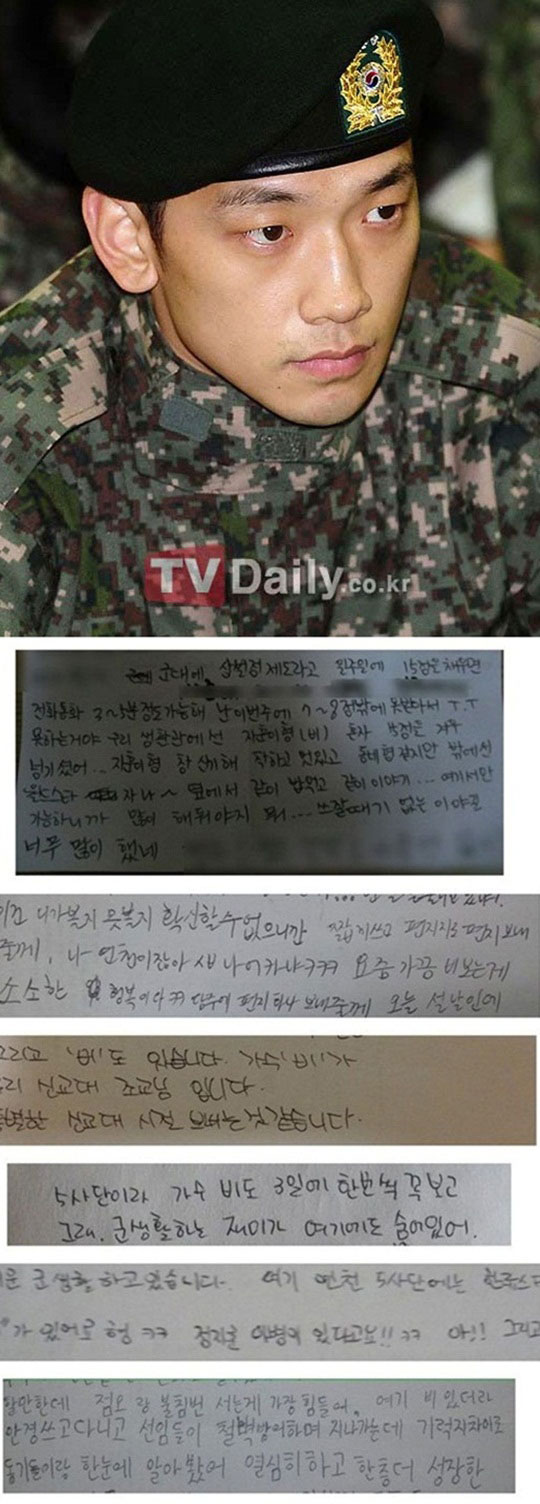 TV Daily.co.kr
군대에 상벌점 제도라고 일주일에 15점을 채우면
전화통화 3~5분정도가능해 난 이번주에 7~8점밖에 못받아서 T.T
못하는거야 우리 생활관에선 지훈이형(비) 혼자 15점을 겨우
넘기셨어... 지훈이형 참 신기해 착하고 멋있고 동네형 같지만 밖에선
월드스타 자나~ 옆에서 같이 밥먹고 같이 이야기... 여기서만
가능하니까 많이 해둬야지 뭐... 쓰잘때기 없는 이야길
너무 많이 했네
니가볼지 못볼지 확신할수없으니깐 편지지로 편지보내
줄께, 나 연천이잖아 ㅋㅋㅋ 요즘 가끔 비보는게
소소한 행복이다ㅋㅋ 담주에 편지 다시 보내줄께 오늘 설날인데
그리고 '비'도 있습니다. 가수 '비'가
우리 신교대 조교님 입니다.
특별한 신교대 시절 보내는것 같습니다.
5사단이라 가수 비도 3일에 한번씩 꼭 보고
그래. 군생활하는 재미가 여기에도 숨어있어.
군 생활 하고있습니다. 여기 연천 5사단에는 월드스타
가 있어요 형 ㅋㅋ 정지훈 이병이 있다고요!! ㅋㅋ 아!! 그리고
할만한데 점호랑 불침번 서는게 가장 힘들어. 여기 비 있더라
안경쓰고다니고 선임들이 철벽방어하며 지나가는데 기럭지차이로
동기들이랑 한눈에 알아봤어 열심히하고 한층더 성장한